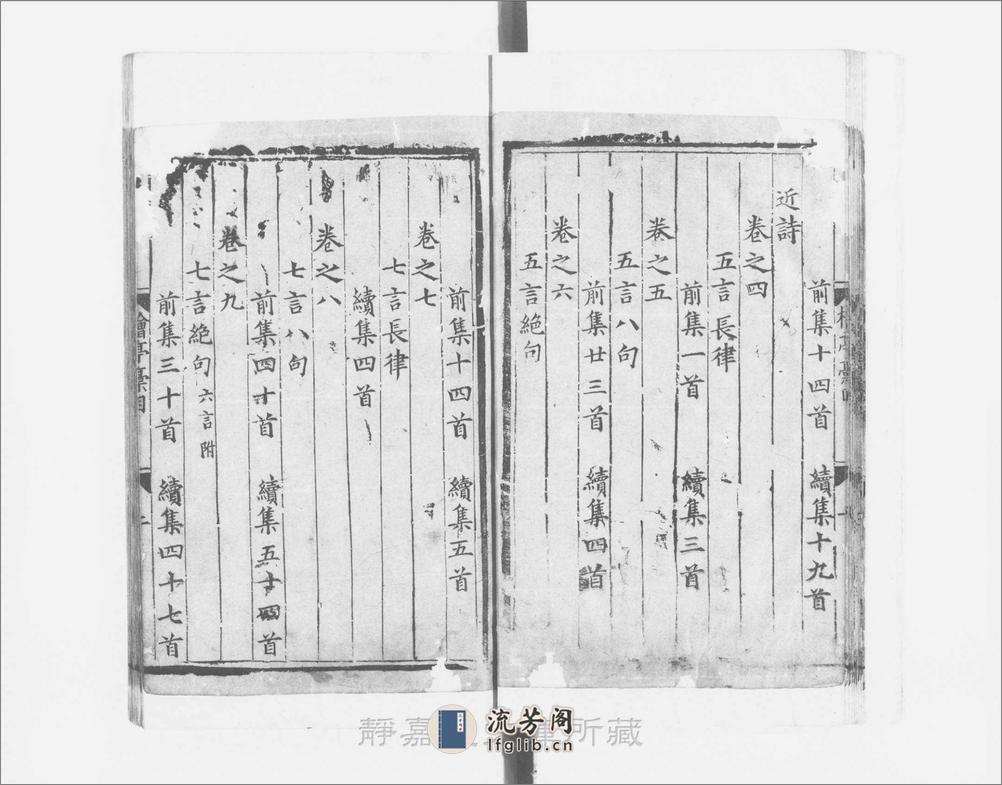 前集十四首　續集十九首
近詩
卷之四
五言長律
前集一首　續集三首
卷之五
五言八句
前集廿三首　續集四首
卷之六
五言絶句
前集十四首　續集五首
卷之七
七言長律
續集四首
卷之八
七言八句
前集四十首　續集五十四首
卷之九
七言絶句六言附
前集三十首　續集四十七首
亭藁目
靜嘉 所藏
流芳阁
lfglib.cn